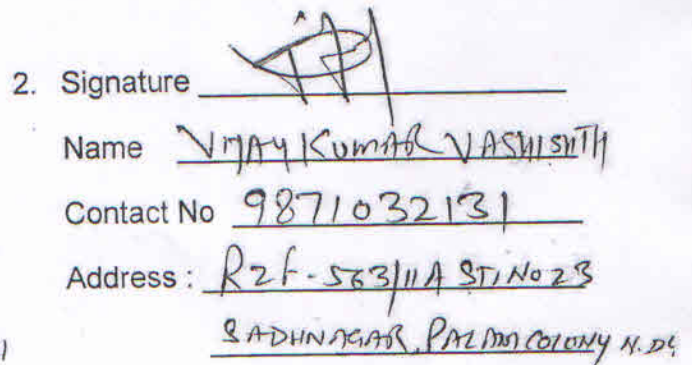 2. Signature
Name VIJAY KUMAR VASHISHTH
Contact No 9871032131
Address : RZF-563/11A ST, NO 23
SADHNAGAR, PALAM COLONY N. D